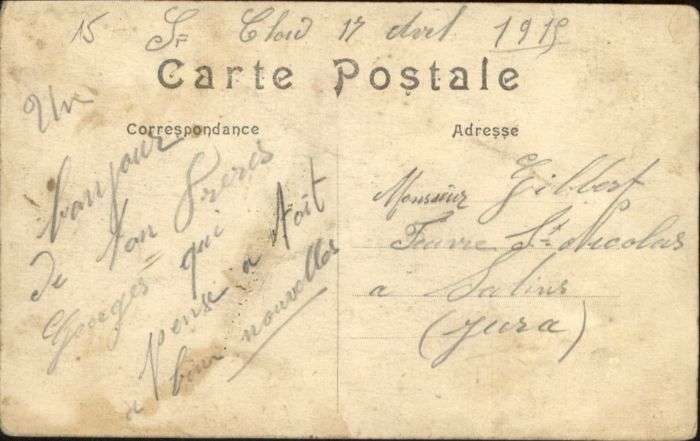 15 St Claud 17 Avril 1915
Carte Postale
Correspondance
Adresse
Un
bonjour
de ton Frères
Georges qui
pense a toit
a bon nouvelles
Monsieur Gilbert
Faivre St Nicolas
a Salins
(Jura)